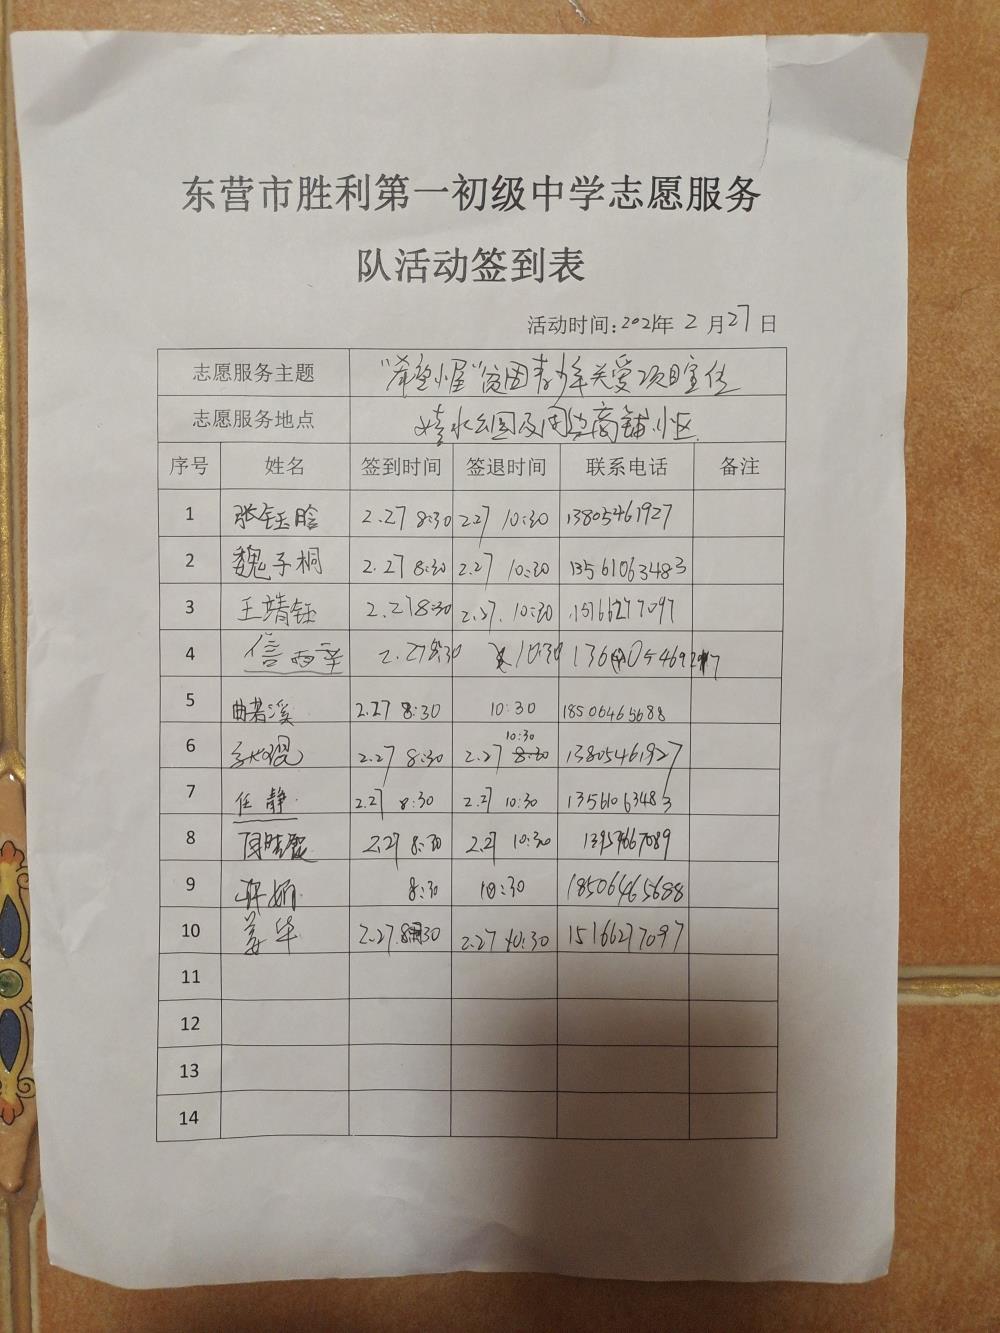 东营市胜利第一初级中学志愿服务
队活动签到表
活动时间:2021年 2 月 27 日
志愿服务主题 "希望小屋"贫困青少年关爱项目宣传
志愿服务地点 水公园及周边商铺小区
序号 姓名 签到时间 签退时间 联系电话 备注
1 张钰晗 2.27 8:30 2.27 10:30 13805461927
2 魏子桐 2.27 8:30 2.27 10:30 13561063483
3 王靖钰 2.27 8:30 2.27. 10:30 15166277097
4 信雨辛 2.27 8:30 10:30
5 曲若溪 2.27 8:30 10:30 18506465688
6 2.27 8:30 2.27 10:30 13805461927
7 任静 2.27 8:30 2.27 10:30 13561063483
8 2.27 8:30 2.27 10:30
9 8:30 10:30 18506465688
10 姜华 2.27 8:30 2.27 10:30 15166277097
11
12
13
14